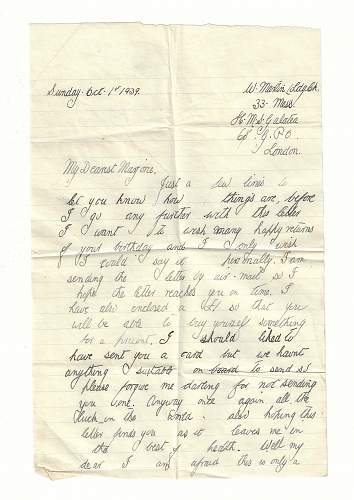 Sunday. Oct. 1st 1939.
W. Martin (Ldg. Sk.
33. Mess.
H.M.S. Galatea
C/o. G.P.O.
London.
My Dearest Marjorie,
Just a few lines to
let you know how things are, before
I go any further with this letter
I want to wish many happy returns
of your birthday and I only wish
I could say it personally. I am
sending the letter by air-mail so I
hope the letter reaches you on time. I
have also enclosed a so that you
will be able to buy yourself something
for a present. I should liked to
have sent you a card but we havnt
anything suitable on board to send so
please forgive me darling for not sending
you one. Anyway once again all the
luck in the world. also hoping this
letter finds you as it leaves me in
the best of health. Well my
dear I am afraid this is only a